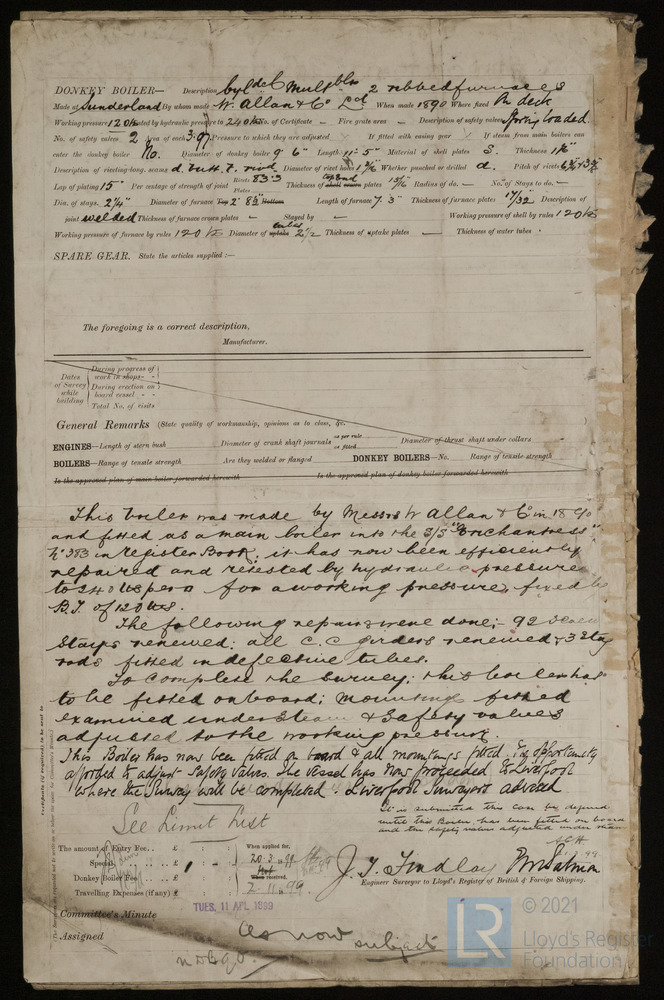 DONKEY BOILER— Description Cyldcl Mult blr 2 ribbed furnaces
Made at Sunderland By whom made W. Allan & Co Ld When made 1890 Where fixed On deck
Working pressure 120 lbs tested by hydraulic pressure to 240 lbs No. of Certificate – Fire grate area – Description of safety valves Spring loaded
No. of safety valves 2 Area of each 3.97 Pressure to which they are adjusted If fitted with easing gear If steam from main boilers can
enter the donkey boiler No. Diameter of donkey boiler 9' 6" Length 11'-5" Material of shell plates S. Thickness
Description of riveting long. seams d. butt. Diameter of rivet holes Whether punched or drilled d. Pitch of rivets
Lap of plating 15" Per centage of strength of joint Rivets 83.3 Plates Thickness of shell crown plates 15/16 Radius of do. – No. of Stays to do. –
Dia. of stays. 2¼" Diameter of furnace Top 2' 8½" Bottom Length of furnace 7' 3" Thickness of furnace plates 17/32 Description of
joint welded Thickness of furnace crown plates – Stayed by – Working pressure of shell by rules 120 lbs
Working pressure of furnace by rules 120 lbs Diameter of uptake tubes 2½ Thickness of uptake plates – Thickness of water tubes
SPARE GEAR. State the articles supplied :—
The foregoing is a correct description,
Manufacturer.
Dates of Survey while building
During progress of work in shops - -
During erection on board vessel - -
Total No. of visits
General Remarks (State quality of workmanship, opinions as to class, &c.
ENGINES—Length of stern bush Diameter of crank shaft journals as per rule as fitted Diameter of thrust shaft under collars
BOILERS—Range of tensile strength Are they welded or flanged DONKEY BOILERS—No. Range of tensile strength
Is the approved plan of main boiler forwarded herewith Is the approved plan of donkey boiler forwarded herewith
This boiler was made by Messrs W Allan & Co in 1890
and fitted as a main boiler into the S/S "Enchantress"
No 383 in register Book, it has now been efficiently
repaired and retested by hydraulic pressure
to 240 lbs per □ for a working pressure, fixed by
B.T. of 120 lbs.
The following repairs were done; 92 screw
stays renewed: all C.C girders renewed & 3 stay
rods fitted in defective tubes.
To complete the survey; this boiler has
to be fitted on board; mountings fitted
examined under steam & Safety valves
adjusted to the working pressure.
This Boiler has now been fitted on board & all mountings fitted. No opportunity
afforded to adjust Safety Valves. The Vessel has now proceeded to Liverpool
where the Survey will be completed. Liverpool Surveyors advised
It is submitted this case be deferred
until this Boiler has been fitted on board
and the safety valves adjusted under steam
See Limit List
The amount of Entry Fee. . . £ : :
Special . . . . £ 1 : - :
Donkey Boiler Fee . . . £ : :
Travelling Expenses (if any) £ : :
When applied for,
20.2.99
When received,
2.11.99
J. T. Findlay
Engineer Surveyor to Lloyd's Register of British & Foreign Shipping.
Committee's Minute TUES. 11 APL 1899
Assigned As now
subject
© 2021
LR
Lloyd's Register
Foundation